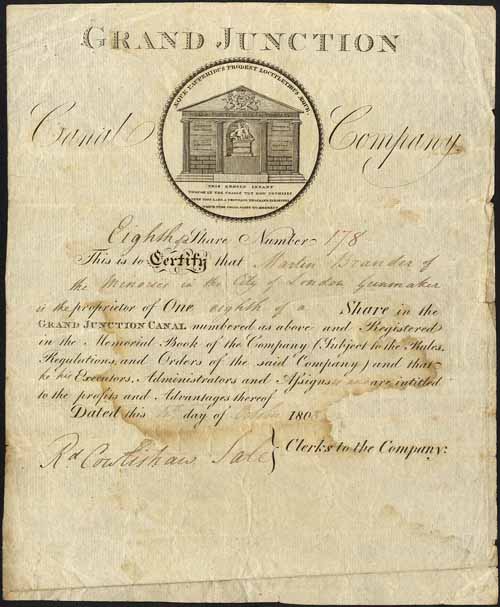 GRAND JUNCTION
ÆQUE PAUPERIBUS PRODEST LOCUPLETIBUS ÆQUE
Canal Company.
THIS ROYAL INFANT
Eighth of Share Number 178
This is to Certify that Martin Brander of
the Minories in the City of London Gunmaker
is the proprietor of One eighth of a Share in the
GRAND JUNCTION CANAL numbered as above and Registered
in the Memorial Book of the Company (Subject to the Rules,
Regulations, and Orders of the said Company) and that
he his Executors, Administrators and Assigns is and are intitled
to the profits and Advantages thereof
Dated this day of 180
Rd Cowlishaw Sale } Clerks to the Company: